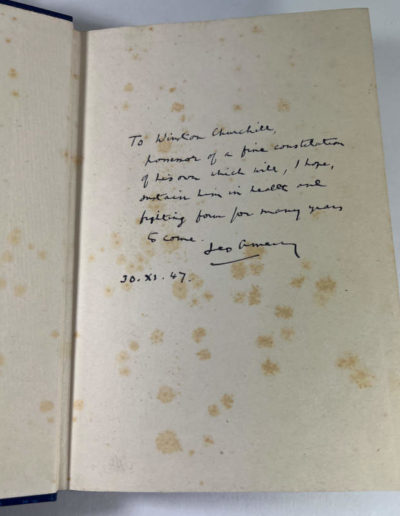 To Winston Churchill,
possessor of a fine constitution
of his own which will, I hope,
sustain him in health and
fighting form for many years
to come.
Leo Amery
30.XI.47.